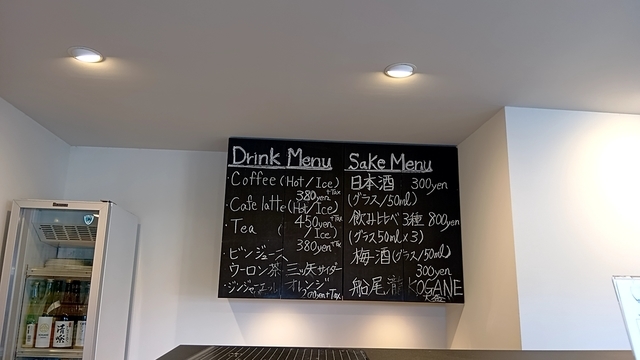 Drink Menu
・Coffee (Hot/Ice)
380yen+Tax
・Cafe latte (Hot/Ice)
450yen+Tax
・Tea ( /Ice)
380yen+Tax
・ビンジュース
ウーロン茶 三ッ矢サイダー
ジンジャーエール オレンジ
Sake Menu
日本酒 300yen
(グラス/50ml)
飲み比べ 3種 800yen
(グラス50ml×3)
梅酒 (グラス/50ml)
300yen
船尾瀧 KOGANE
清楽